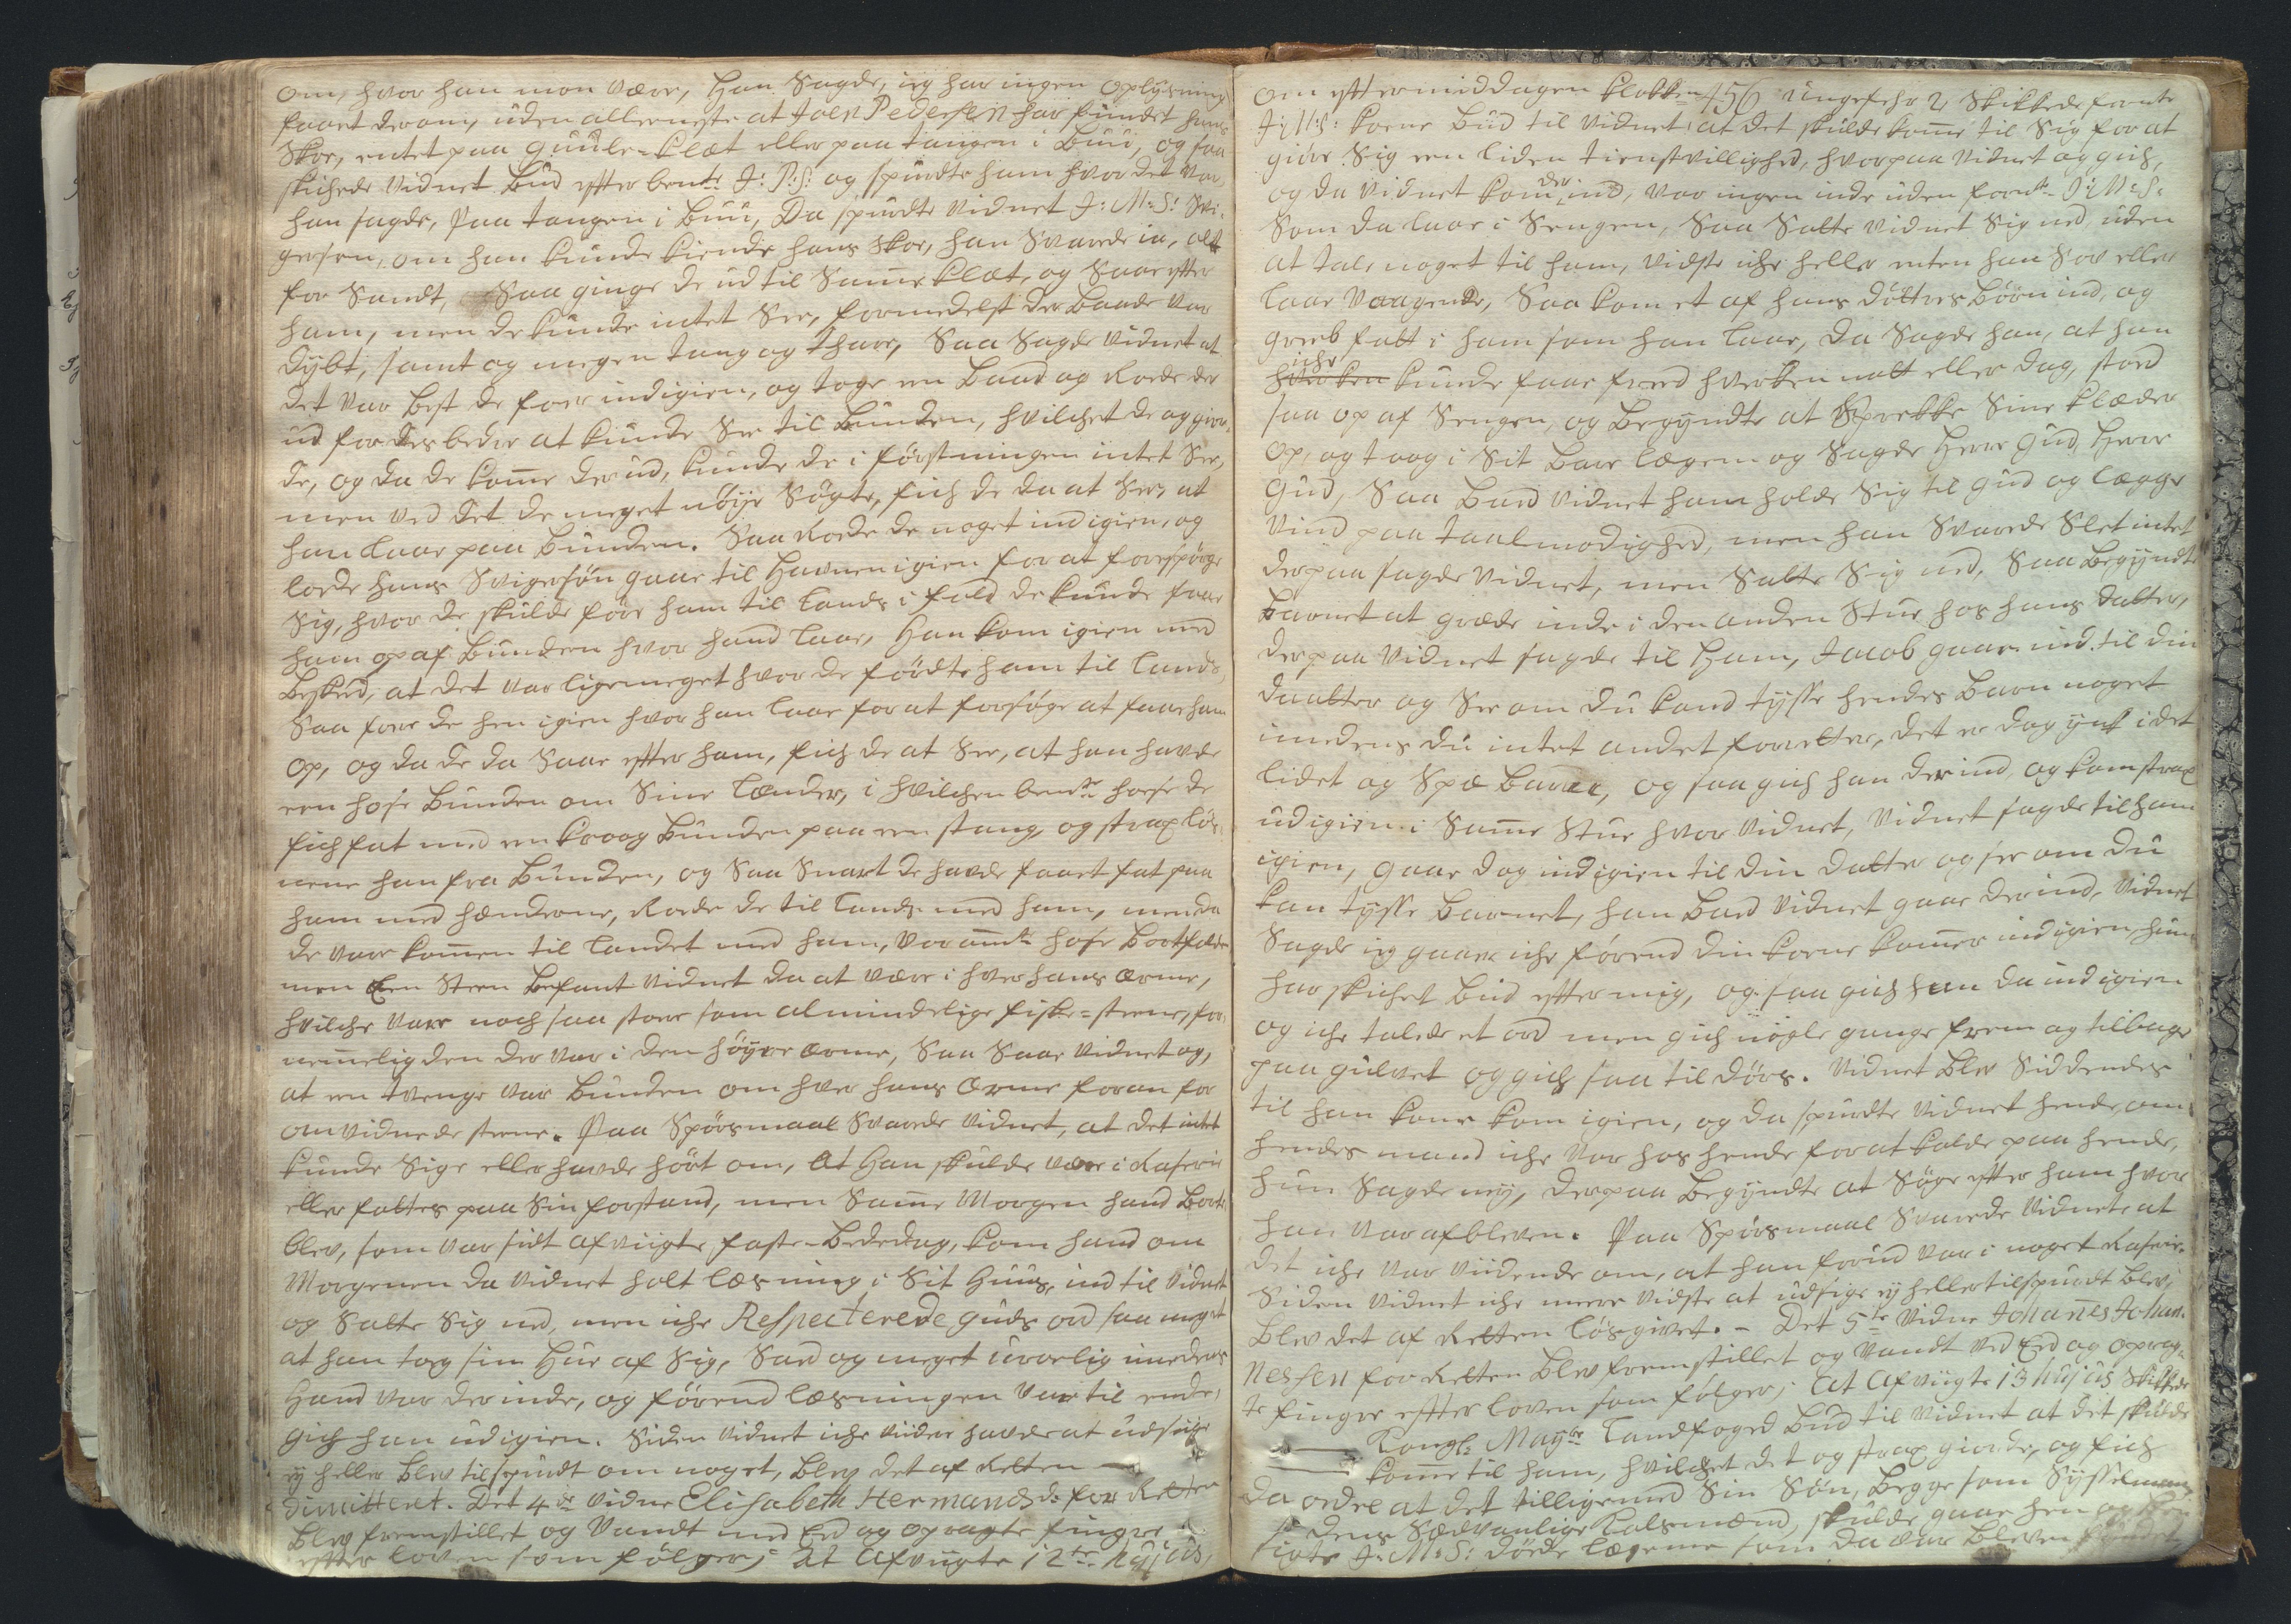 om, hvor han mon være, Han Sagde, ieg har ingen oplysning
faaet derom, uden allerneste at Joen Pedersen har fundet hans
Skoe, entet paa Guule-Klæt eller paa tangen i Buii, og saa
skichede vidnet Bud efter bente J: P: S: og spurdte ham hvor det var,
han sagde, Paa tangen i Buii, Da spurdte vidnet J: M: S: Svi-
gersøn, om han kunde kiende hans skoe, han Svarede ia, alt
for Sandt, Saa ginge de ud til Samme Klæt, og Saae efter
ham, men de kunde intet See, formedelst der Baade var
dybt, samt og megen tang og thare, Saa Sagde vidnet at
det var best de foer ind igien, og toge en Baad og Roede der
ud for des bedre at kunde See til Bunden, hvilchet de og giør-
de, og da de komme der ud, kunde de i førstningen intet See,
men ved det de meget nøye Søgte, fich de da at See, at
han laae paa Bunden. Saa Roede de noget ind igien, og
lode hans Svigersøn gaae til Havnen igien for at forespørge
Sig, hvor de skulde føre ham til Lands i fald de kunde faae
ham op af Bunden hvor hand laae, Han kom igien med
Besked, at det var ligemeget hvor de førdte ham til Lands,
Saa foer de hen igien hvor han laae for at forsøge at faae ham
op, og da de da Saae efter ham, fich de at See, at han havde
een hose Bunden om Sine Lænder, i hvilchen bente hose de
fich fat med en krog Bunden paa een stang, og strax løs-
nene han fra Bunden, og Saa Snart de havde faaet fat paa
ham med hænderne, Roede de til Lands med ham, men da
de vare kommen til Landet med ham, var ommte hose Bortfalden
men Een Steen Befant vidnet da at være i hver hans Ærme,
hvilche vare noch saa store som almindelige fiske-steene, for-
nemmelig den der var i den høyre ærme, Saa Saae vidnet og,
at en tvenge var Bunden om hver hans Ærme foran for
omvidnede steene. Paa Spørsmaal Svarede vidnet, at det intet
kunde Sige eller havde hørt om, at Han skulde være i Raserie
eller fattes paa Sin forstand, men Samme Morgen hand Borte
blev, som var sidst afvigte faste-Bededag, kom hand om
Morgenen da vidnet holt læsning i Sit Huus, ind til vidnet
og Satte Sig ned, men iche Respecterede Guds ord saa meget
at han tog sin Hue af Sig, Sad og meget urolig imedens
Hand var der inde, og førend læsningen var til ende,
gich han ud igien. Siden vidnet iche viidere havde at udsige
ey heller blev tilspurdt om noget, blev det af Retten
dimitteret. Det 4de vidne Elisabeth Hermandsd: for Retten
blev fremstillet og vandt med Eed og opragte fingre
efter loven som følger; At afvigte 12te hujus,
456
om eftermiddagen klokken ungefehr 2, skikkede fornte
J: M: S: kone Bud til vidnet, at det skulde komme til Sig for at
giøre Sig een liden tienstvillighed, hvorpaa vidnet og gich,
og da vidnet kom der ind, var ingen inde uden fornte J: M: S:
Som da laae i Sengen, Saa Satte vidnet Sig ned, uden
at tale noget til ham, vidste iche heller enten han Sov eller
laae vaagende, Saa kom et af hans døttres Børn ind, og
greeb fatt i ham som han laae, Da Sagde han, at han
iche
hverken kunde faae freed hverken natt eller dag, stoed
saa op af Sengen, og Begyndte at Sprekke Sine klæder
op, og toog i Sit bare legem og Sagde Herre Gud, Herre
Gud, Saa Bad vidnet ham holde Sig til Gud og legge
vind paa Taalmodighed, men han Svarede Slet intet
derpaa sagde vidnet, men Satte Sig ned, Saa Begyndte
Barnet at græde inde i den anden Stue hos hans datter,
derpaa vidnet sagde til Ham, Jacob gaae ind til din
daatter og See om du kand tysse hendes Barn noget
imedens du intet andet forretter, det er dog ynk i det
lidet og Spæ Barn, og saa gich han der ind, og kom strax
ud igien i Samme Stue hvor vidnet, vidnet sagde til ham
igien, gaae dog ind igien til din datter og see om du
kan tysse Barnet, han Bad vidnet gaae der ind, vidnet
Sagde ieg gaaer iche førend din kone kommer ind igien, hun
har skichet Bud efter mig, og saa gich han da ind igien
og iche talede et ord men gich nogle gange frem og tilbage
paa gulvet og gich saa til dørs. Vidnet blev Siddendes
til han kone kom igien, og da spurdte vidnet hende, om
hendes mand iche var hos hende for at kalde paa hende,
hun Sagde ney, derpaa Begyndte at Søge efter ham hvor
han var afbleven. Paa Spørsmaal Svarede vidnet, at
det iche var viidende om, at han forud var i noget Raserie.
Siden vidnet iche meere vidste at udsige ey heller tilspurdt blev,
blev det af Retten løsgivet. - Det 5te vidne Johannes Johan-
nessen for Retten blev fremstillet og vandt ved Eed og oprag-
te fingre efter loven som følger; At afvigte 13 hujus skikkede
Kongl: Mayts Landfoged Bud til vidnet at det skulde
komme til ham, hvilchet det og strax giorde, og fich
da ordre at det tilligemed Sin Søn, Begge som Sysselmands
dens Sædvanlige Talsmænd, skulde gaae hen og
sigte J: M: S: døde legeme som da var bleven fundet